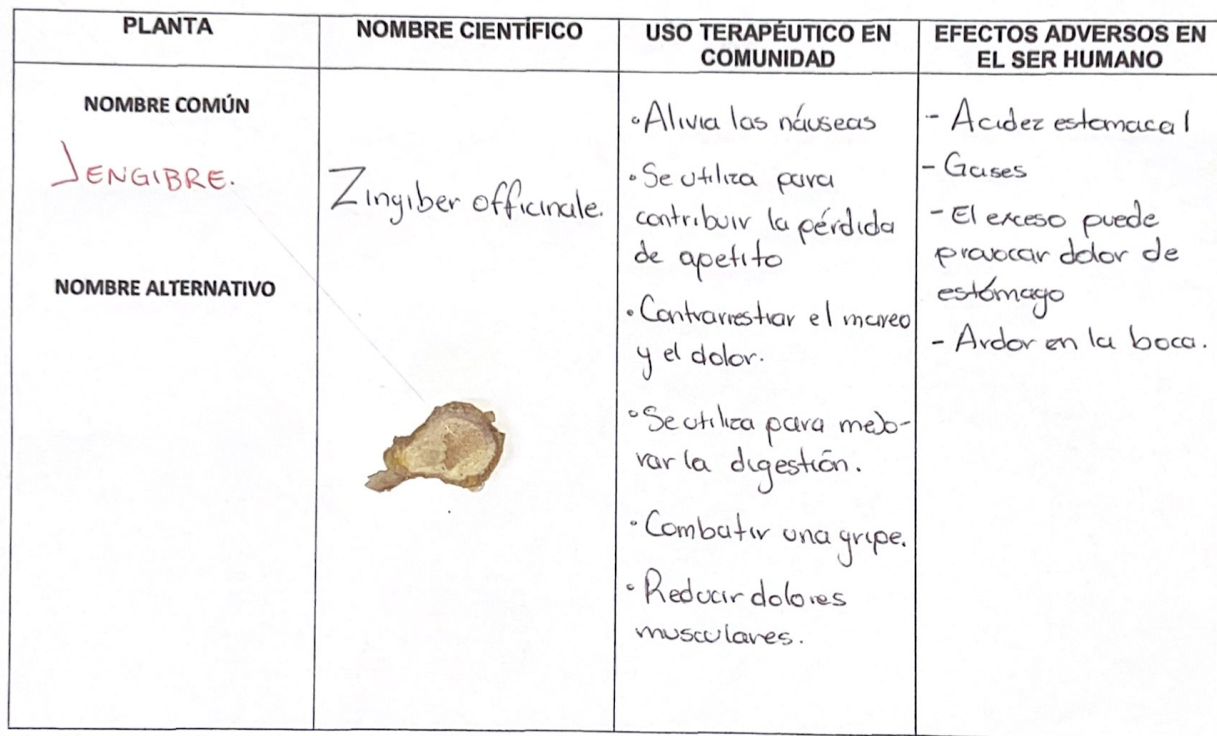 PLANTA
NOMBRE CIENTÍFICO
USO TERAPÉUTICO EN
COMUNIDAD
EFECTOS ADVERSOS EN
EL SER HUMANO
NOMBRE COMÚN
JENGIBRE.
NOMBRE ALTERNATIVO
Zingiber officinale.
• Alivia las náuseas
• Se utiliza para
contribuir la pérdida
de apetito
• Contrarrestrar el mareo
y el dolor.
• Se utiliza para mejo-
rar la digestión.
• Combatir una gripe.
• Reducir dolores
musculares.
- Acidez estomacal
- Gases
- El exceso puede
provocar dolor de
estómago
- Ardor en la boca.